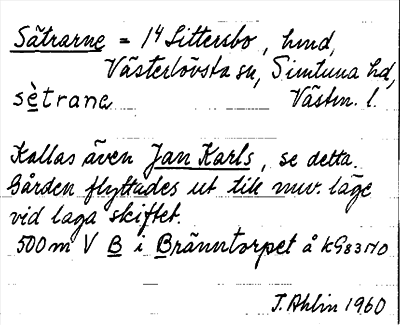 Sätrarne = 1⁴ Sittersbo, hmd,
Västerlövsta sn, Simtuna hd,
sètrana Västm. l.
Kallas även Jan Karls, se detta.
Gården flyttades ut till nuv. läge
vid laga skiftet.
500 m V B i Bränntorpet å kG83170
T. Ahlin 1960